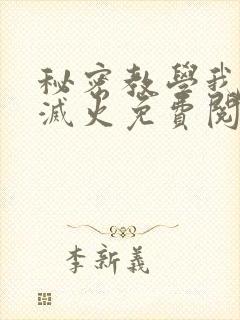 秘密教學我
滅火免費閱
李新義